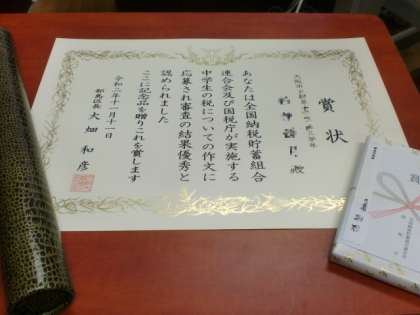 賞状
殿
あなたは全国納税貯蓄組合
連合会及び国税庁が実施する
中学生の税についての作文に
応募され審査の結果優秀と
認められました
ここに記念品を贈りこれを賞します
令和二年十一月十一日
都島区長 大畑 和彦
賞